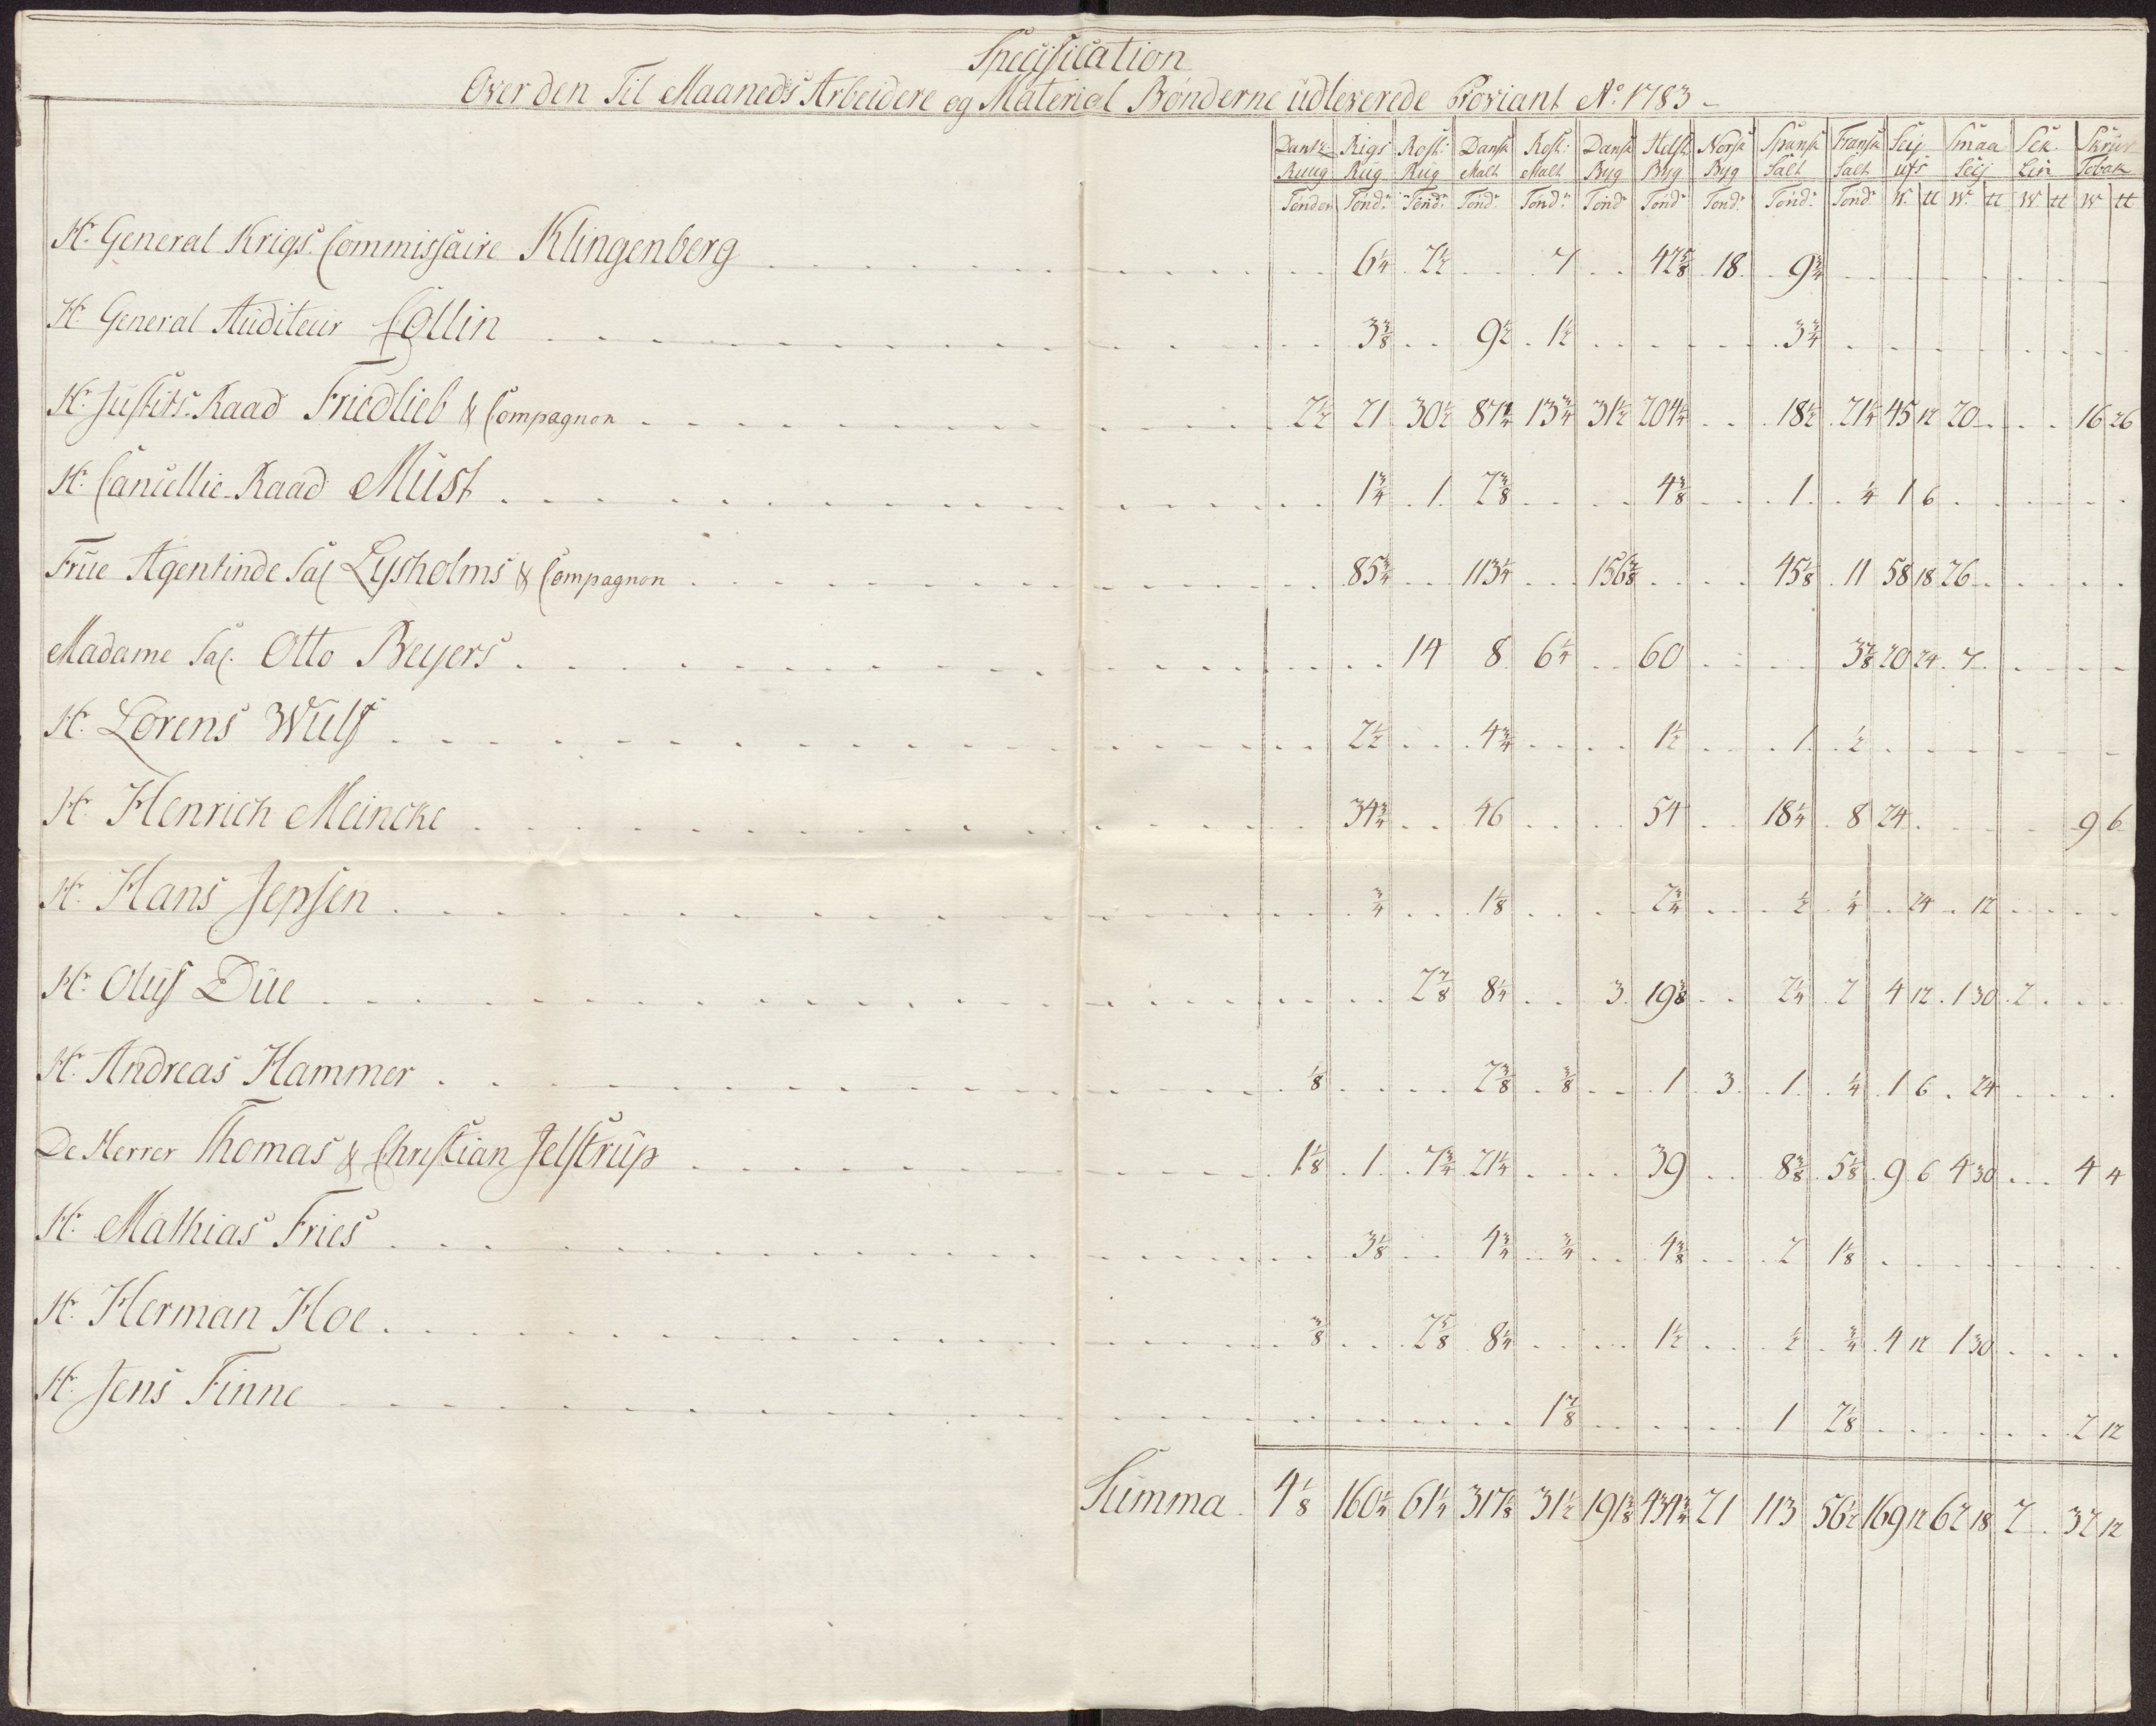 Specification
Over den Til Maaneds Arbeidere og Material Bønderne udleverede Proviant Ao. 1783
Dansk Rigs Rost: Dansk Rost: Dansk Holst. Norsk Spansk Fransk Seij Smaa Skruv
Ruug Rug Rug Malt Malt Byg Byg Byg Salt Salt ufs Seij Lin Tobak
Tønder Tønd: Tønd: Tønd: Tønd: Tønd: Tønd: Tønd: Tønd: Tønd: W: tt W: tt W tt W tt
Hr. General Krigs Commissaire Klingenberg 6¼ 2½ 7 42⅝ 18 9¾
Hr General Auditeur Collin 3⅜ 9½ 1½ 3¾
Hr. Justits-Raad Friedlieb & Compagnon 2½ 21 30½ 87¼ 13¾ 31½ 204¼ 18½ 21¼ 45 12 20 16 26
Hr. Cancellie-Raad Must 1¾ 1 2⅜ 4⅜ 1 ¼ 1 6
Frue Agentinde Sal Lysholms & Compagnon 85¾ 113¼ 156⅞ 45⅛ 11 58 18 26
Madame Sal. Otto Beyers 14 8 6¼ 60 3⅞ 20 24 7
Hr. Lorens Wulf 2½ 4¾ 1½ 1 ½
Hr Henrich Meincke 34¾ 46 54 18¼ 8 24 9 6
Hr. Hans Jepsen ¾ 1⅛ 2¾ ½ ¼ 24 12
Hr. Oluf Due 2⅞ 8¼ 3 19⅜ 2¼ 2 4 12 1 30 2
Hr. Andreas Hammer ⅛ 2⅜ ⅜ 1 3 1 ¼ 1 6 24
De Herrer Thomas & Christian Jelstrup 1⅛ 1 7¾ 21¼ 39 8⅜ 5⅛ 9 6 4 30 4 4
Hr. Mathias Fries 3⅛ 4¾ ¾ 4⅜ 2 1⅛
Hr. Herman Hoe ⅜ 2⅝ 8¼ 1½ ½ ¾ 4 12 1 30
Hr. Jens Finne 1⅞ 1 2⅛ 2 12
Summa 4⅛ 160¼ 61¼ 317⅛ 31½ 191⅜ 434¾ 21 113 56½ 169 12 62 18 2 32 12